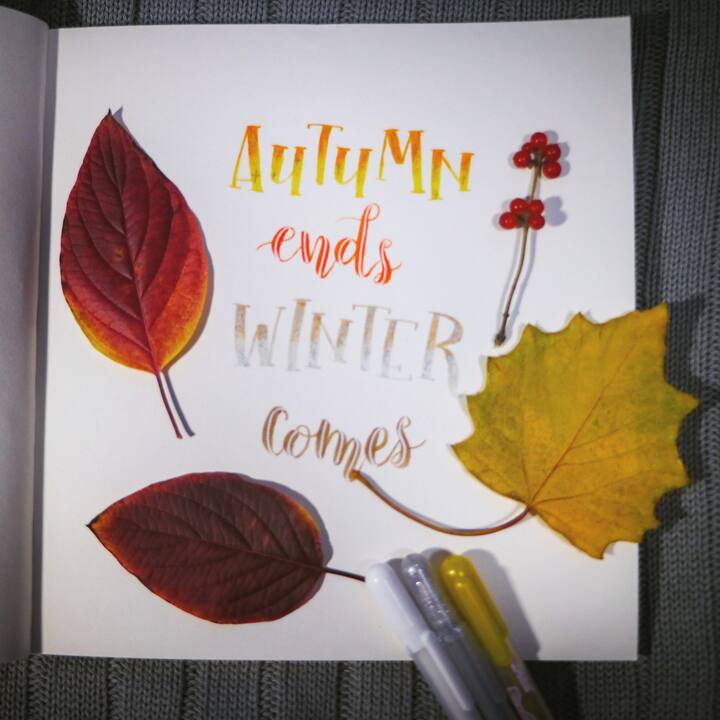 AUTUMN
ends
WINTER
comes